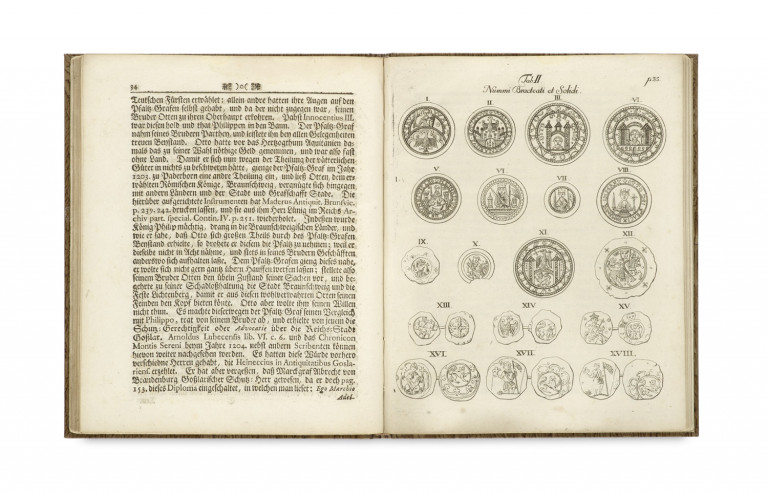 34
Teutschen Fürsten erwählet: allein andre hatten ihre Augen auf den
Pfaltz-Grafen selbst gehabt, und da der nicht zugegen war, seinen
Bruder Otten zu ihren Oberhaupt erkohren. Pabst Innocentius III.
war diesen hold und that Philippen in den Bann. Der Pfaltz-Graf
nahm seines Bruders Parthey, und leistete ihn bey allen Gelegenheiten
treuen Beystand. Otto hatte vor das Hertzogthum Aquitanien da-
mals das zu seiner Wahl nöthige Geld genommen, und war also fast
ohne Land. Damit er sich nun wegen der Theilung der vätterlichen
Güter in nichts zu beschweren hätte, gienge der Pfaltz-Graf im Jahr
1203. zu Paderborn eine andre Theilung ein, und ließ Otten, dem er-
wählten Römischen Könige, Braunschweig, vergnügte sich hingegen
mit andern Ländern und der Stadt und Graffschafft Stade. Die
hierüber aufgerichtete Instrumenten hat Maderus Antiquit. Brunsvic.
p. 239. 242. drucken lassen, und sie aus ihm Herr Lünig im Reichs Ar-
chiv part. special. Contin. IV. p. 251. wiederholet. Indeßen wurde
König Philip mächtig, drang in die Braunschweigischen Länder, und
wie er sahe, daß Otto sich großen Theils durch des Pfaltz-Grafen
Beystand erhielte, so drohete er diesem die Pfaltz zu nehmen; weil er
dieselbe nicht in Acht nähme, und stets in seines Brudern Geschäfften
anderswo sich aufhalten laße. Dem Pfaltz-Grafen gieng dieses nahe,
er wolte sich nicht gern gantz übern Hauffen werfen laßen; stellete also
seinen Bruder Otten den übeln Zustand seiner Sachen vor, und be-
gehrte zu seiner Schadloßhaltung die Stadt Braunschweig und die
Feste Lichtenberg, damit er aus diesen wohlverwahrten Orten seinen
Feinden den Kopf bieten könte. Otto aber wolte ihm seinen Willen
nicht thun. Es machte dieserwegen der Pfaltz-Graf seinen Vergleich
mit Philippo, trat von seinem Bruder ab, und erhielte von jenem die
Schutz-Gerechtigkeit oder Advocatie über die Reichs-Stadt
Goßlar. Arnoldus Lubecensis lib. VI. c. 6. und das Chronicon
Montis Sereni beym Jahre 1204. nebst andern Scribenten können
hiervon weiter nachgesehen werden. Es hatten diese Würde vorhero
verschiedne Herren gehabt, die Heineccius in Antiquitatibus Gosla-
riens. erzehlet. Er hat aber vergeßen, daß Marckgraf Albrecht von
Brandenburg Goßlarischer Schutz-Herr gewesen, da er doch pag.
153. dieses Diploma eingeschaltet, in welchen man lieset: Ego Marchio
Adel-
Tab. II
p. 35
Nummi Bracteati et Solidi.
I. II. III. VI.
V. VI. VII VIII.
IX. X. XI XII.
XIII. XIV XV.
XVI. XVII. XVIII.